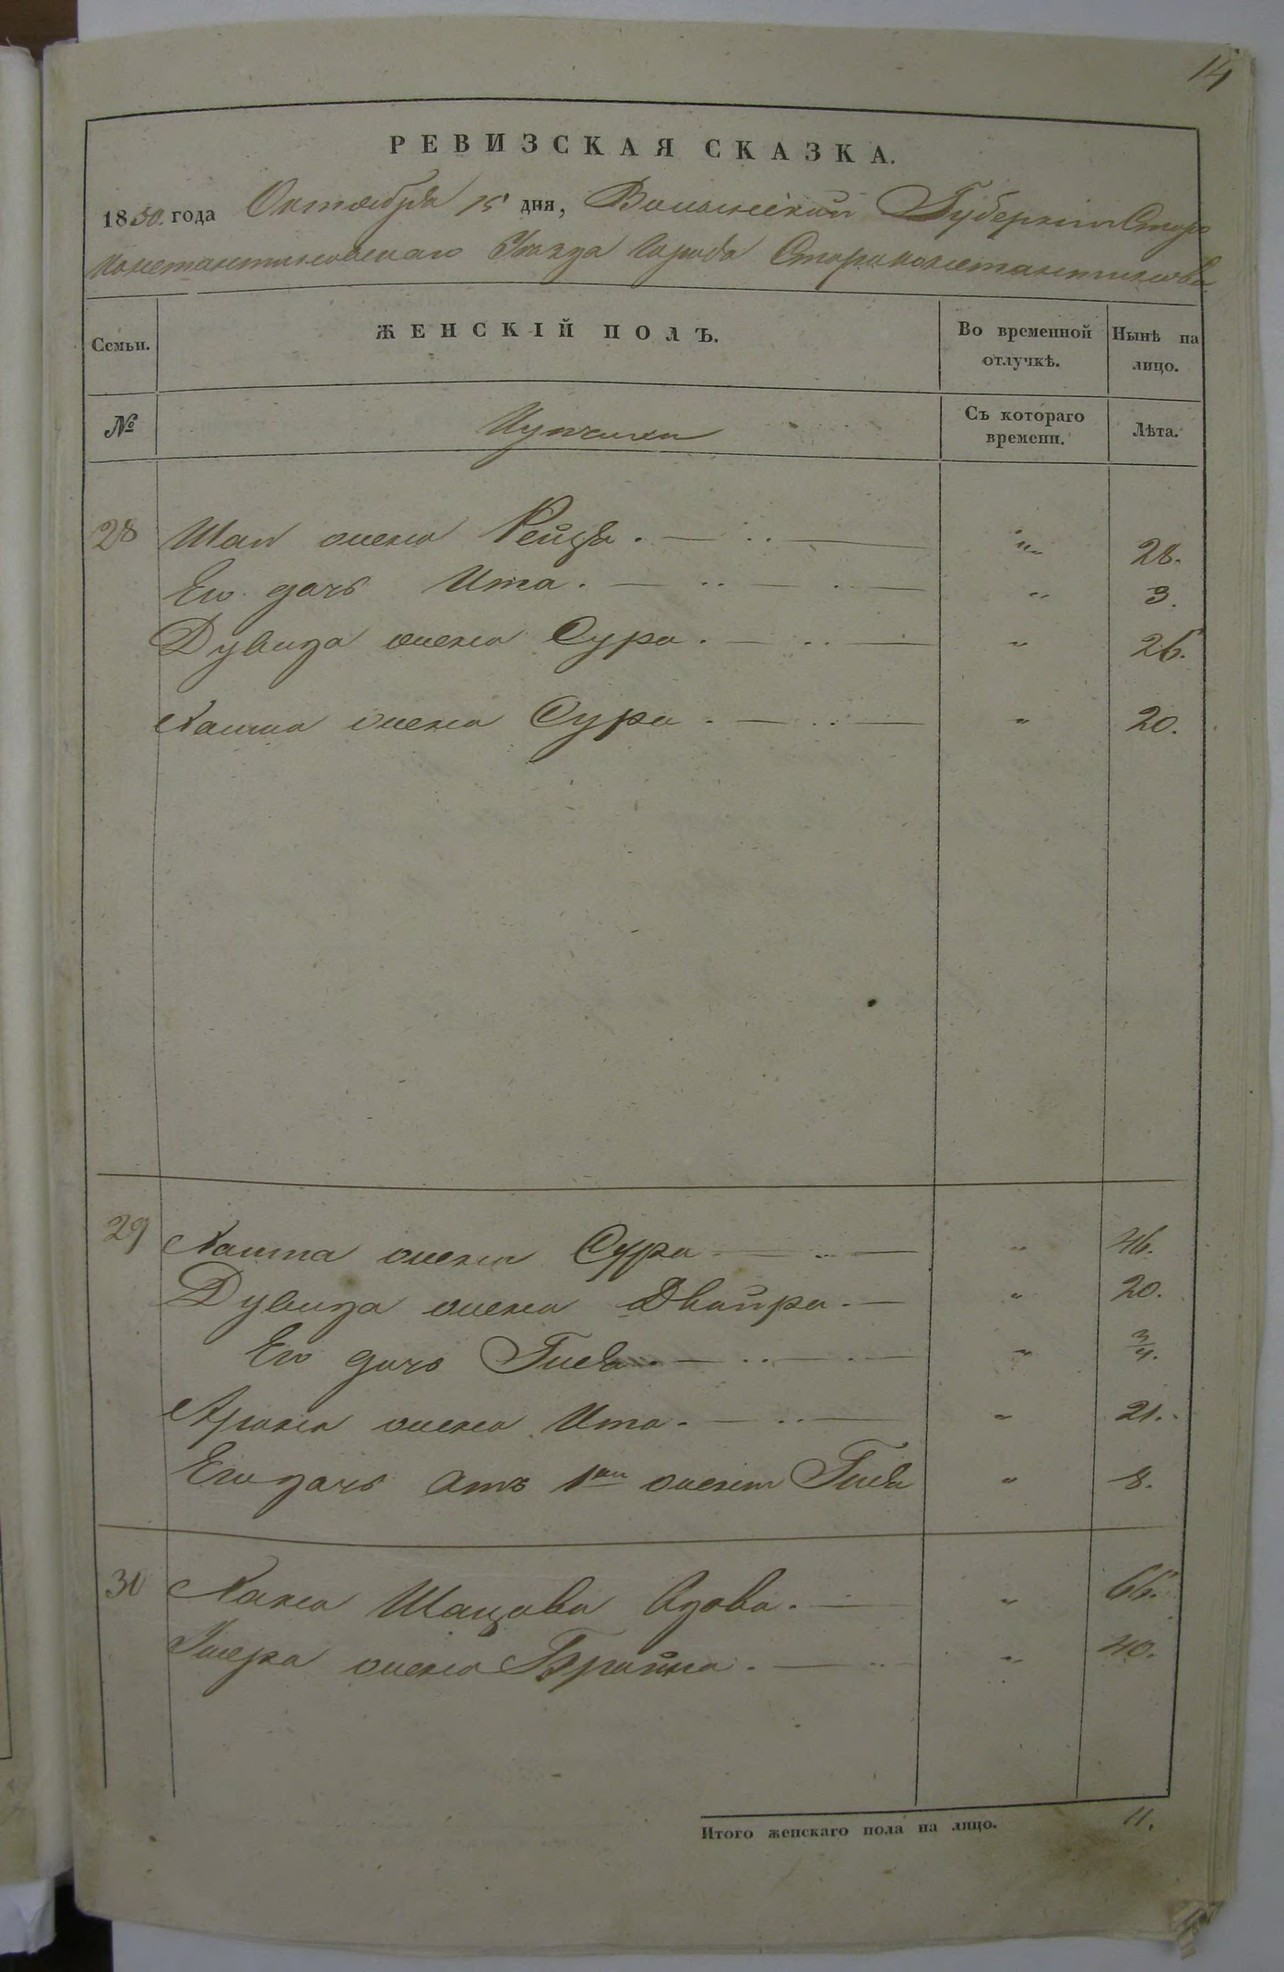 14
РЕВИЗСКАЯ СКАЗКА.
1850. года Октября 15 дня, Волынской Губернии Старо
константиновскаго Уезда Города Староконстантинова
Семьи.
ЖЕНСКІЙ ПОЛЪ.
Во временной отлучкѣ.
Нынѣ на лицо.
№
Съ котораго времени.
Лѣта.
28 жена Рейзя. " 28.
Его дочь Ита. " 3.
Дувида жена Сура. " 26.
жена Сура " 20.
29 жена Сура " 46.
Дувида жена Двойра. " 20.
Его дочь Гися " 3/4.
Арона жена Ита. " 21.
Его дочь отъ 1ой жены Гися " 8.
30 Вдова. "
жена Брайна. " 40.
Итого женскаго пола на лицо. 11.